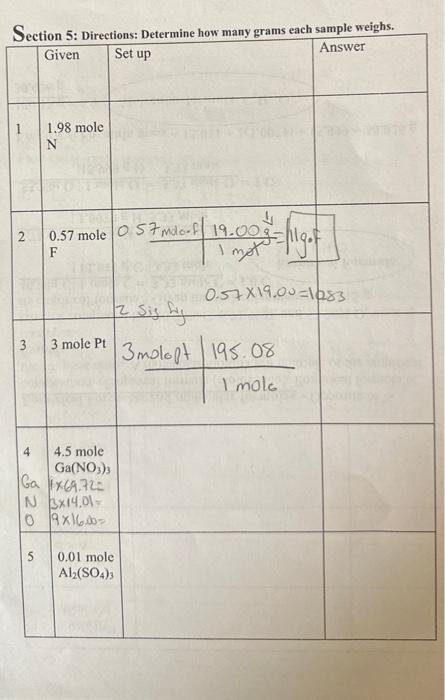 Section 5: Directions: Determine how many grams each sample weighs.
Given Set up Answer
1 1.98 mole
N
2 0.57 mole
F
0.57 mole.f 19.00g = 11g.f
1 mol
0.57x19.00=1083
2 Sig fig
3 3 mole Pt
3molept 195.08
1 mole
4 4.5 mole
Ga(NO₃)₃
Ga 1x69.72=
N 3x14.01=
O 9x16.00=
5 0.01 mole
Al₂(SO₄)₃